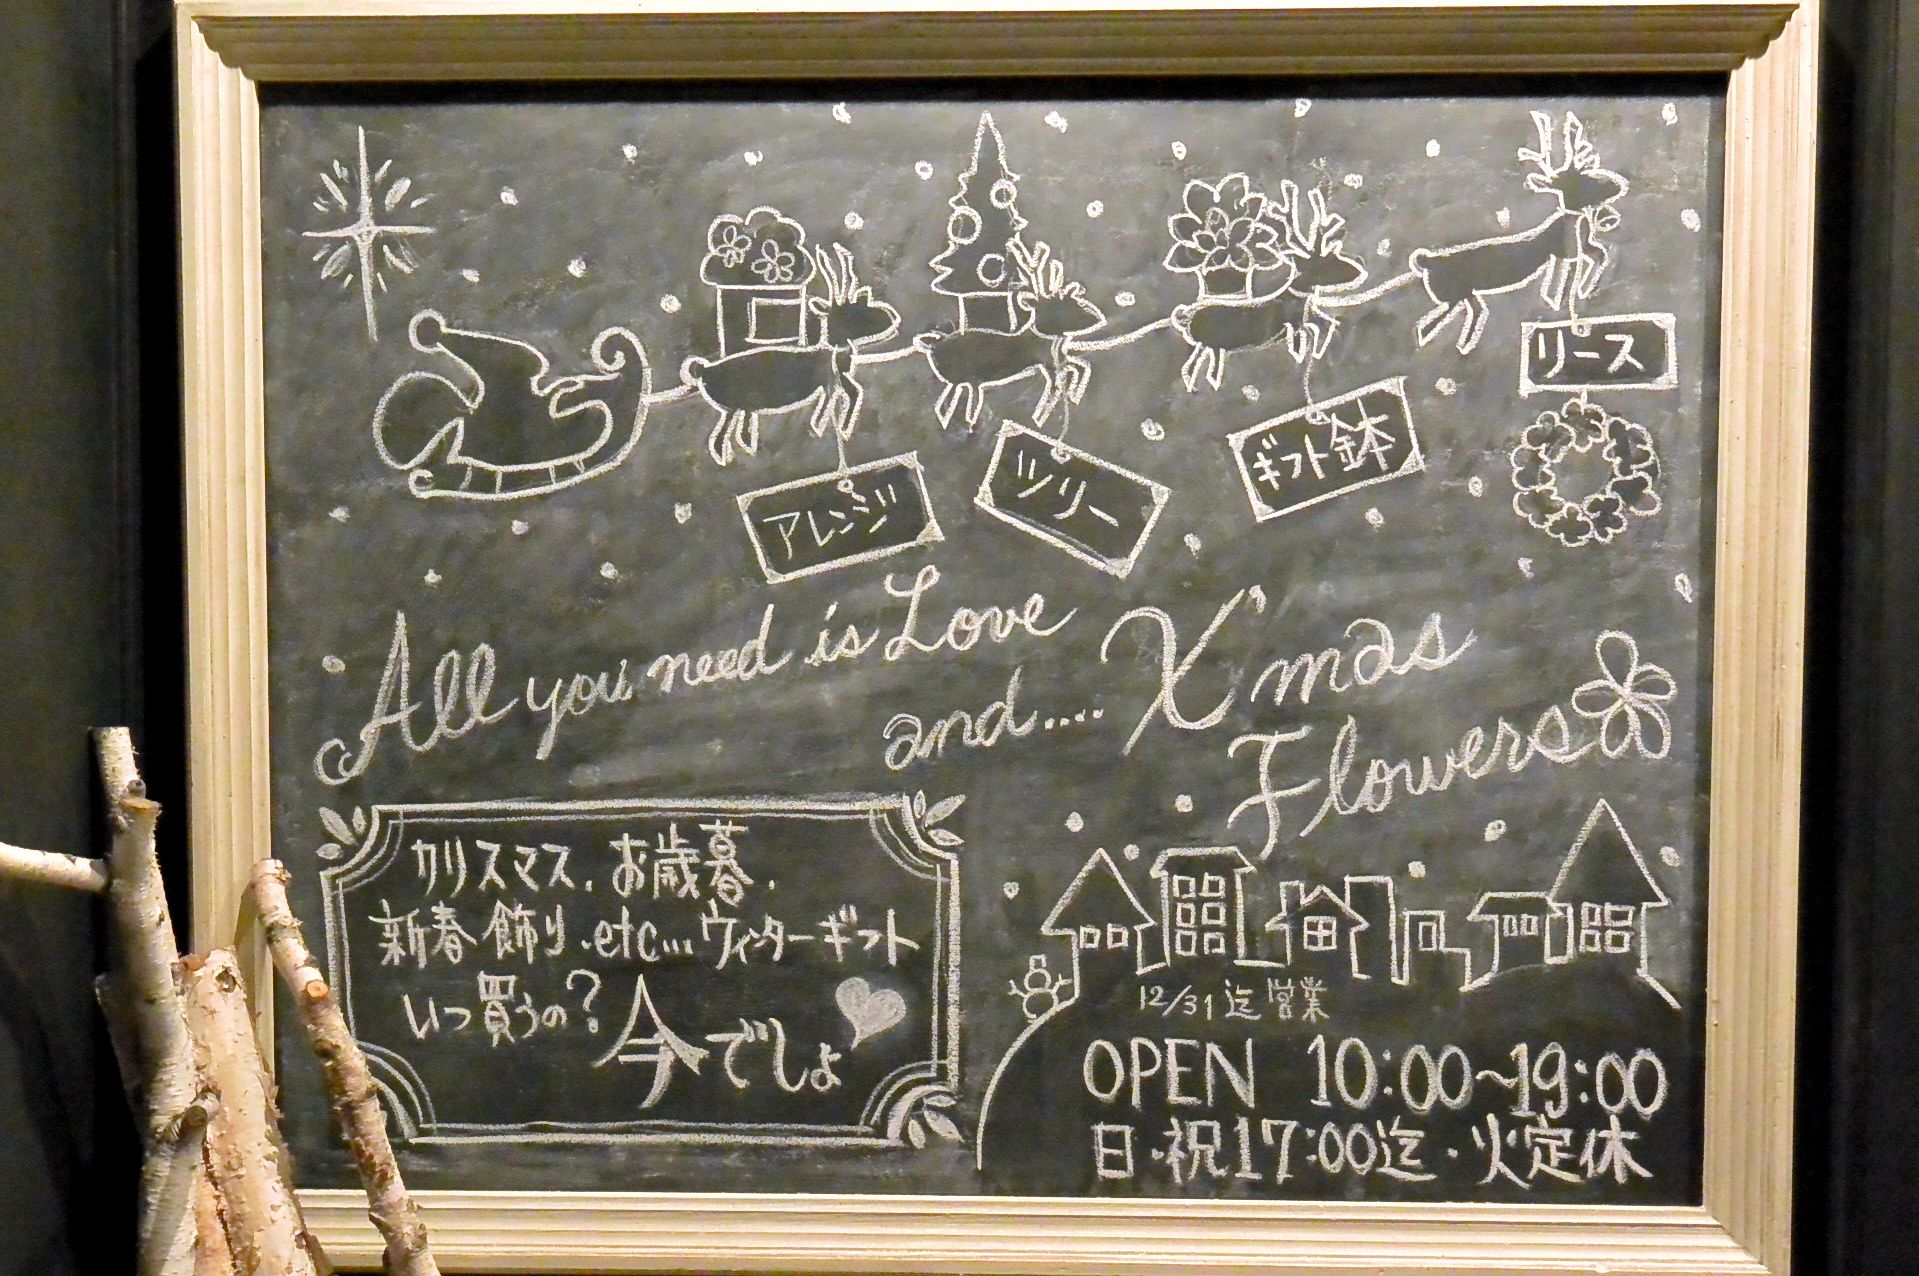 リース
ギフト鉢
ツリー
アレンジ
All you need is Love
and.... X'mas
Flowers
クリスマス.お歳暮.
新春飾り.etc...ウィンターギフト
いつ買うの?
今でしょ
12/31迄営業
OPEN 10:00~19:00
日・祝17:00迄・火定休